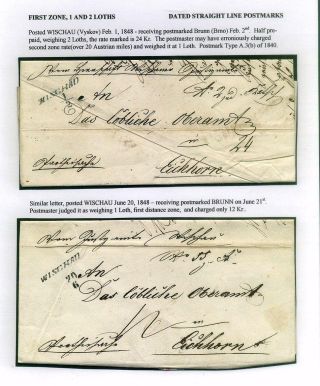 FIRST ZONE, 1 AND 2 LOTHS
DATED STRAIGHT LINE POSTMARKS
Posted WISCHAU (Vyskov) Feb. 1, 1848 - receiving postmarked Brunn (Brno) Feb. 2nd. Half pre-
paid, weighing 2 Loths, the rate marked is 24 Kr. The postmaster may have erroniously charged
second zone rate(over 20 Austrian miles) and weighed it at 1 Loth. Postmark Type A.3(b) of 1840.
WISCHAU
An
Das löbliche Oberamt
in
24
Eichhorn
Similar letter, posted WISCHAU June 20, 1848 – receiving postmarked BRUNN on June 21st.
Postmaster judged it as weighing 1 Loth, first distance zone, and charged only 12 Kr.
WISCHAU
An
Das löbliche Oberamt
Eichhorn